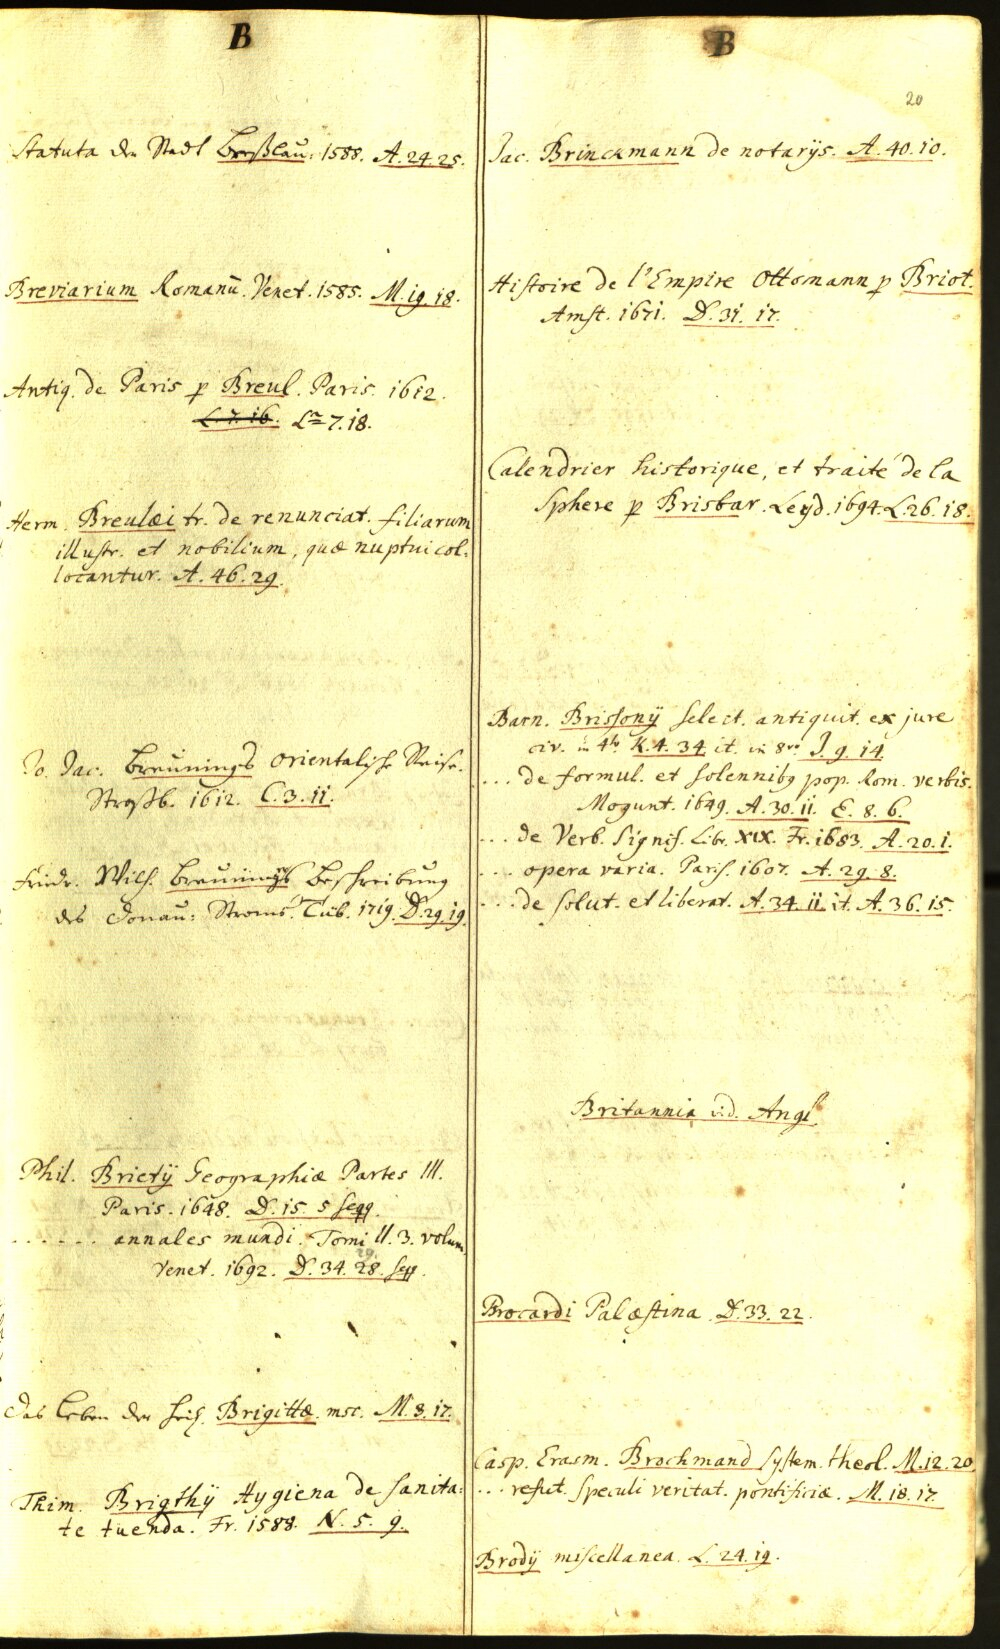 B
Statuta der Stadt Breßlau. 1588. A. 24. 25.
Breviarium Romanū. Venet. 1585. M. 19. 18.
Antiq. de Paris p Breul. Paris. 1612.
L. 7. 16. Lª 7. 18.
Herm. Breulæi tr. de renunciat. filiarum
illustr. et nobilium, quæ nuptui col-
locantur. A. 46. 29.
Jo. Jac. Breunings Orientalische Reise.
Straßb. 1612. C. 3. 11.
Fridr. Wilh. Breunings Beschreibung
des Donau-Stroms. Tüb. 1719. D. 29. 19.
Phil. Brietij Geographiæ Partes III.
Paris. 1648. D. 15. 5 seqq.
...... annales mundi. Tomi II. 3. volum.
29.
Venet. 1692. D. 34. 28. seqq.
Das Leben der heil. Brigittæ. msc. M. 8. 17.
Thim. Brigthij Hygiena de sanita-
te tuenda. Fr. 1588. N. 5. 9.
B
20
Jac. Brinckmann de notarijs. A. 40. 10.
Histoire de l'Empire Ottomann p Briot.
Amst. 1671. D. 31. 17.
Calendrier historique, et traité de la
Sphere p Brisbar. Leyd. 1694. L. 26. 18.
Barn. Brissonij select. antiquit. ex jure
civ. in 4to K. 4. 34. it. in 8vo J. 9. 14.
... de formul. et solennibq pop. Rom. verbis.
Mogunt. 1649. A. 30. 11. E. 8. 6.
... de Verb. Signif. Libr. XIX. Fr. 1683. A. 20. 1.
... opera varia. Paris. 1607. A. 29. 8.
... de solut. et liberat. A. 34. 11. it. A. 36. 15.
Britannia vid. Angl.
Brocardi Palæstina. D. 33. 22.
Casp. Erasm. Brochmand system. theol. M. 12. 20.
... refut. speculi veritat. pontificiæ. M. 18. 17.
Brodij miscellanea. L. 24. 19.